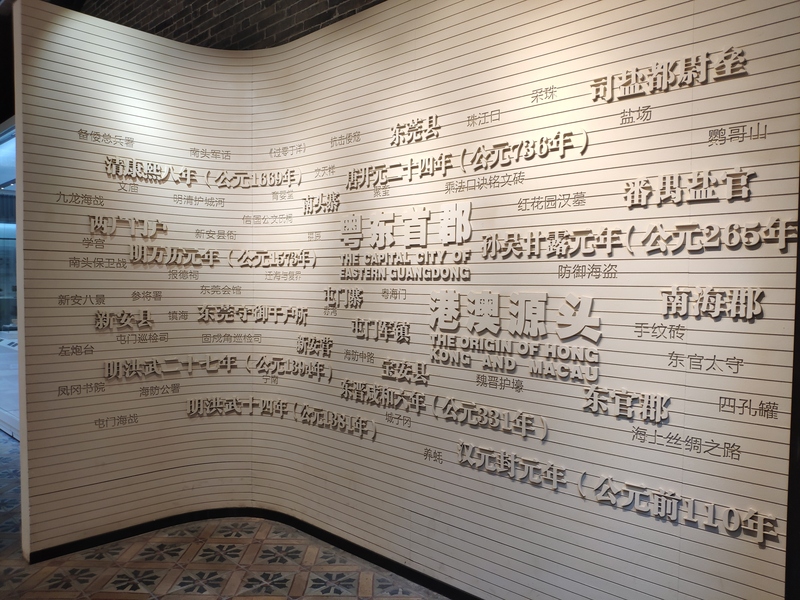 司盐都尉垒
采珠
盐场
珠江口
东莞县
鹦哥山
备倭总兵署
南头军话
《过零丁洋》
抗击倭寇
唐开元二十四年（公元736年）
清康熙八年（公元1669年）
文天祥
文庙
乘法口诀铭文砖
番禺盐官
九龙海战
明清护城河
南头寨
红花园汉墓
两广门户
信国公文氏祠
粤东首郡
孙吴甘露元年（公元265年）
学宫
新安县衙
THE CAPITAL CITY OF
EASTERN GUANGDONG
明万历元年（公元1573年）
南头保卫战
报德祠
迁海与复界
防御海盗
东莞会馆
屯门寨
粤海门
南海郡
新安八景
参将署
港澳源头
新安县
镇海
东莞守御千户所
手纹砖
屯门军镇
THE ORIGIN OF HONG
KONG AND MACAU
屯门巡检司
固戍角巡检司
新安营
左炮台
海防中路
东官太守
明洪武二十七年（公元1394年）
宝安县
魏晋护壕
凤冈书院
海防公署
东晋咸和六年（公元331年）
东官郡
四孔罐
明洪武十四年（公元1381年）
城子冈
屯门海战
海上丝绸之路
养蚝
汉元封元年（公元前110年）